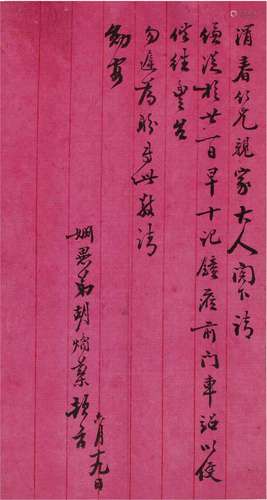 渭春仁兄親家大人閣下請
從於廿一日早十記鐘蒞前門車站以便
偕往豐台
勿遲為盼專此敬請
勛安
姻愚弟胡燏棻頓首
六月十九日